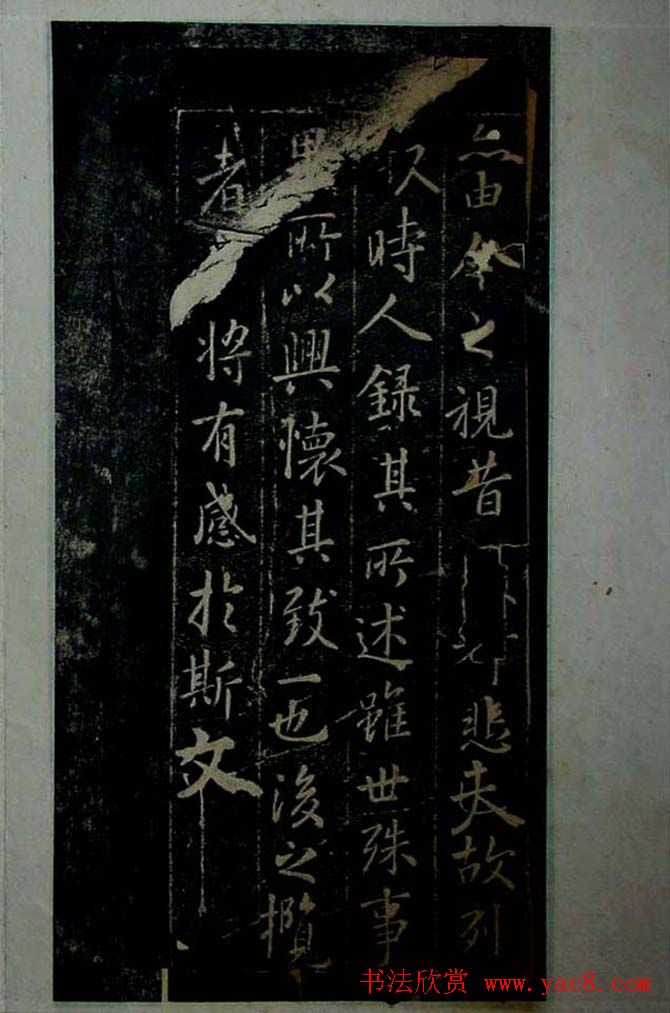 亦由今之視昔悲夫故列
叙時人録其所述雖世殊事
異所以興懷其致一也後之攬
者將有感於斯文
书法欣赏 www.yac8.com